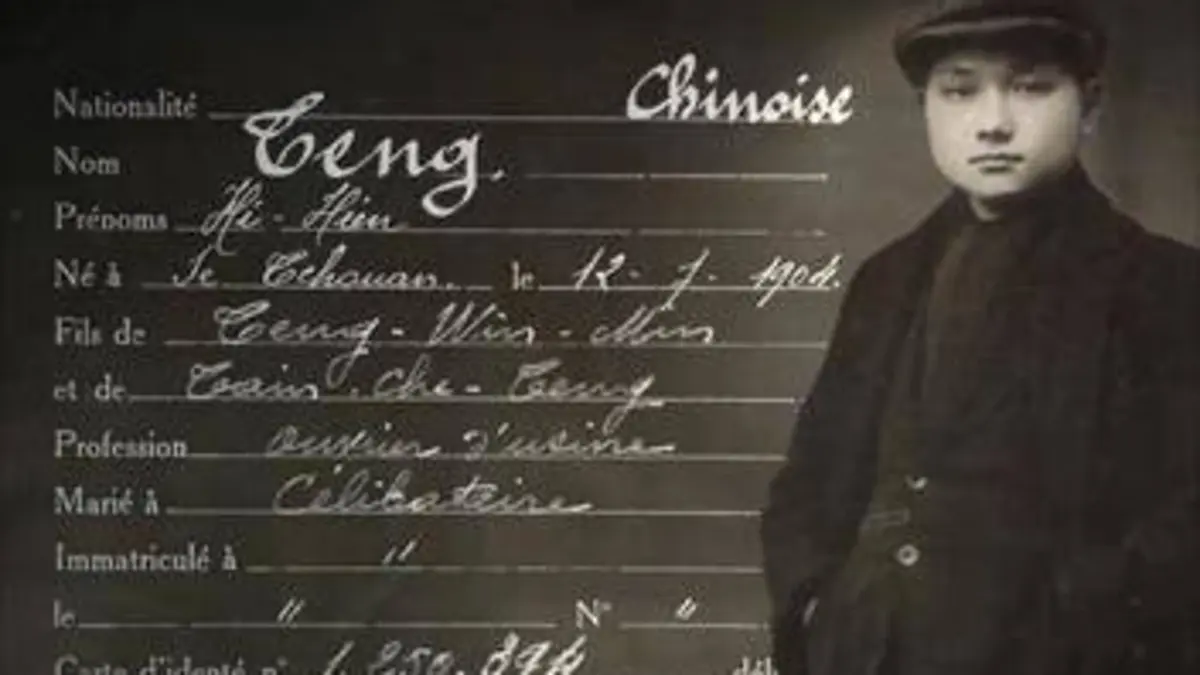 Nationalité Chinoise
Nom Teng.
Prénoms Hi-Hien
Né à Se Tchouan. le 12-7-1904.
Fils de Teng-Win-Min
et de Tain-Che-Teng
Profession ouvrier d'usine
Marié à Célibataire
Immatriculé à "
le " N° "
Carte d'identé n° 1.250.394